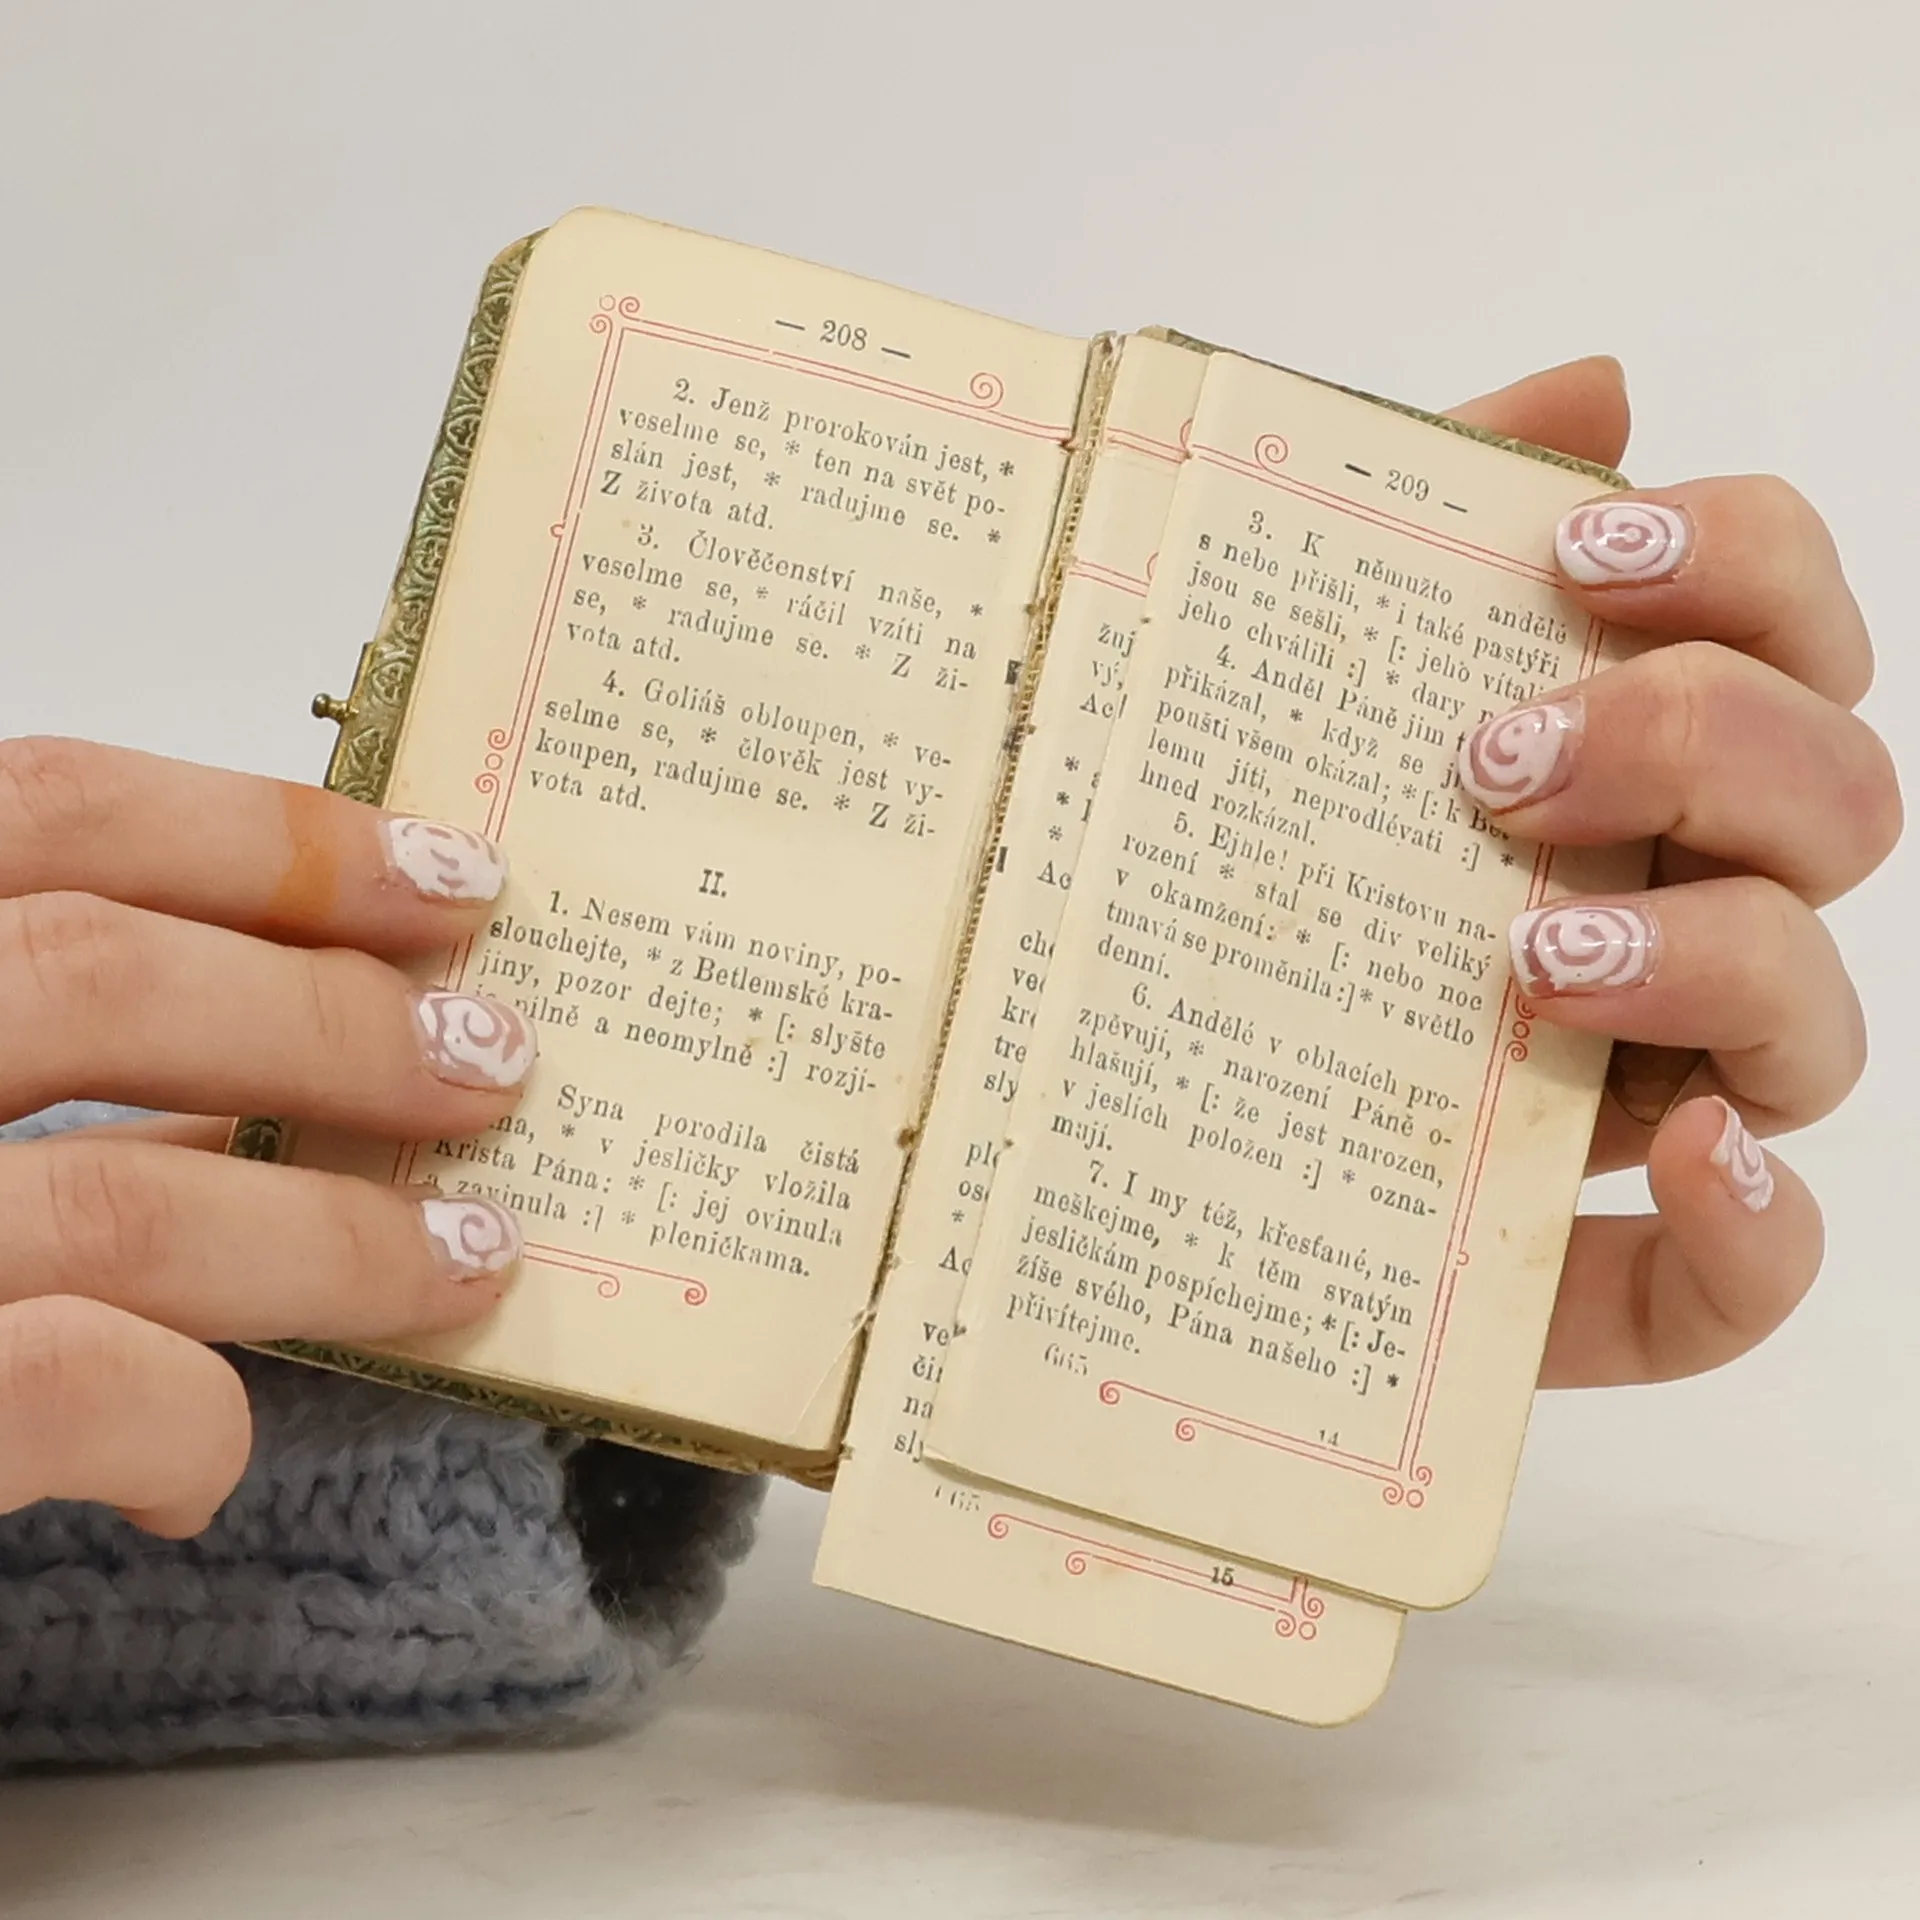 — 208 —
2. Jenž prorokován jest, *
veselme se, * ten na svět po-
slán jest, * radujme se. *
Z života atd.
3. Člověčenství naše, *
veselme se, * ráčil vzíti na
se, * radujme se. * Z ži-
vota atd.
4. Goliáš obloupen, * ve-
selme se, * člověk jest vy-
koupen, radujme se. * Z ži-
vota atd.
II.
1. Nesem vám noviny, po-
slouchejte, * z Betlemské kra-
jiny, pozor dejte; * [: slyšte
pilně a neomylně :] rozjí-
Syna porodila čistá
* v jesličky vložila
Krista Pána: * [: jej ovinula
a zavinula :] * pleničkama.
— 209 —
3. K němužto andělé
s nebe přišli, * i také pastýři
jsou se sešli, * [: jeho vítali
jeho chválili :] * dary
4. Anděl Páně jim
přikázal, * když se
poušti všem okázal; * [: k Bet-
lemu jíti, neprodlévati :] *
hned rozkázal.
5. Ejhle! při Kristovu na-
rození * stal se div veliký
v okamžení: * [: nebo noc
tmavá se proměnila :] * v světlo
denní.
6. Andělé v oblacích pro-
zpěvují, * narození Páně o-
hlašují, * [: že jest narozen,
v jeslích položen :] * ozna-
mují.
7. I my též, křesťané, ne-
meškejme, * k těm svatým
jesličkám pospíchejme; * [: Je-
žíše svého, Pána našeho :] *
přivítejme.
665
14
žuj
vý,
*
*
*
ve
na
665
15